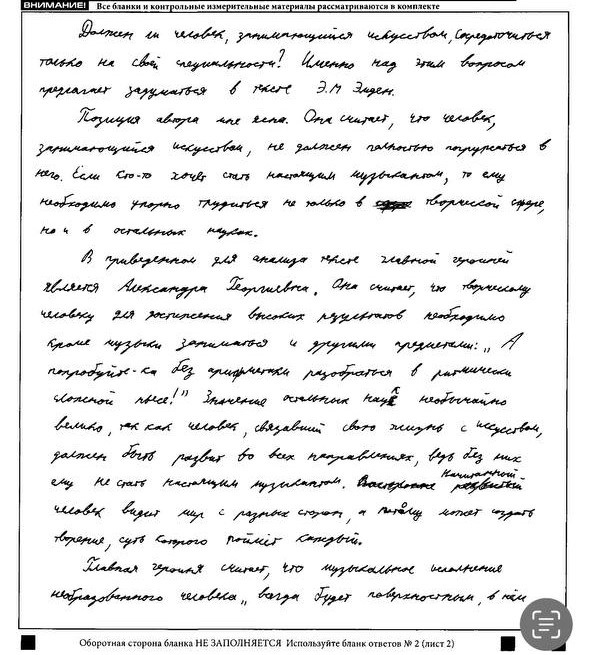 ВНИМАНИЕ! Все бланки и контрольные измерительные материалы рассматриваются в комплекте
Должен ли человек, занимающийся искусством, сосредоточиться
только на своей специальности? Именно над этим вопросом
предлагает задуматься в тексте Э.М Эмден.
Позиция автора мне ясна. Она считает, что человек,
занимающийся искусством, не должен полностью погружаться в
него. Если кто-то хочет стать настоящим музыкантом, то ему
необходимо упорно трудиться не только в творческой сфере,
но и в остальных науках.
В приведенном для анализа тексте главной героиней
является Александра Георгиевна. Она считает, что творческому
человеку для достижения высоких результатов необходимо
кроме музыки заниматься и другими предметами: „ А
попробуйте-ка без арифметики разобраться в ритмически
сложной пьесе!" Значение остальных наук необычайно
велико, так как человек, связавший свою жизнь с искусством,
должен быть развит во всех направлениях, ведь без них
ему не стать настоящим музыкантом. Начитанный
человек видит мир с разных сторон, а потому может создать
творение, суть которого поймёт каждый.
Главная героиня считает, что музыкальное исполнение
необразованного человека „ всегда будет поверхностным, в нём
Оборотная сторона бланка НЕ ЗАПОЛНЯЕТСЯ Используйте бланк ответов № 2 (лист 2)